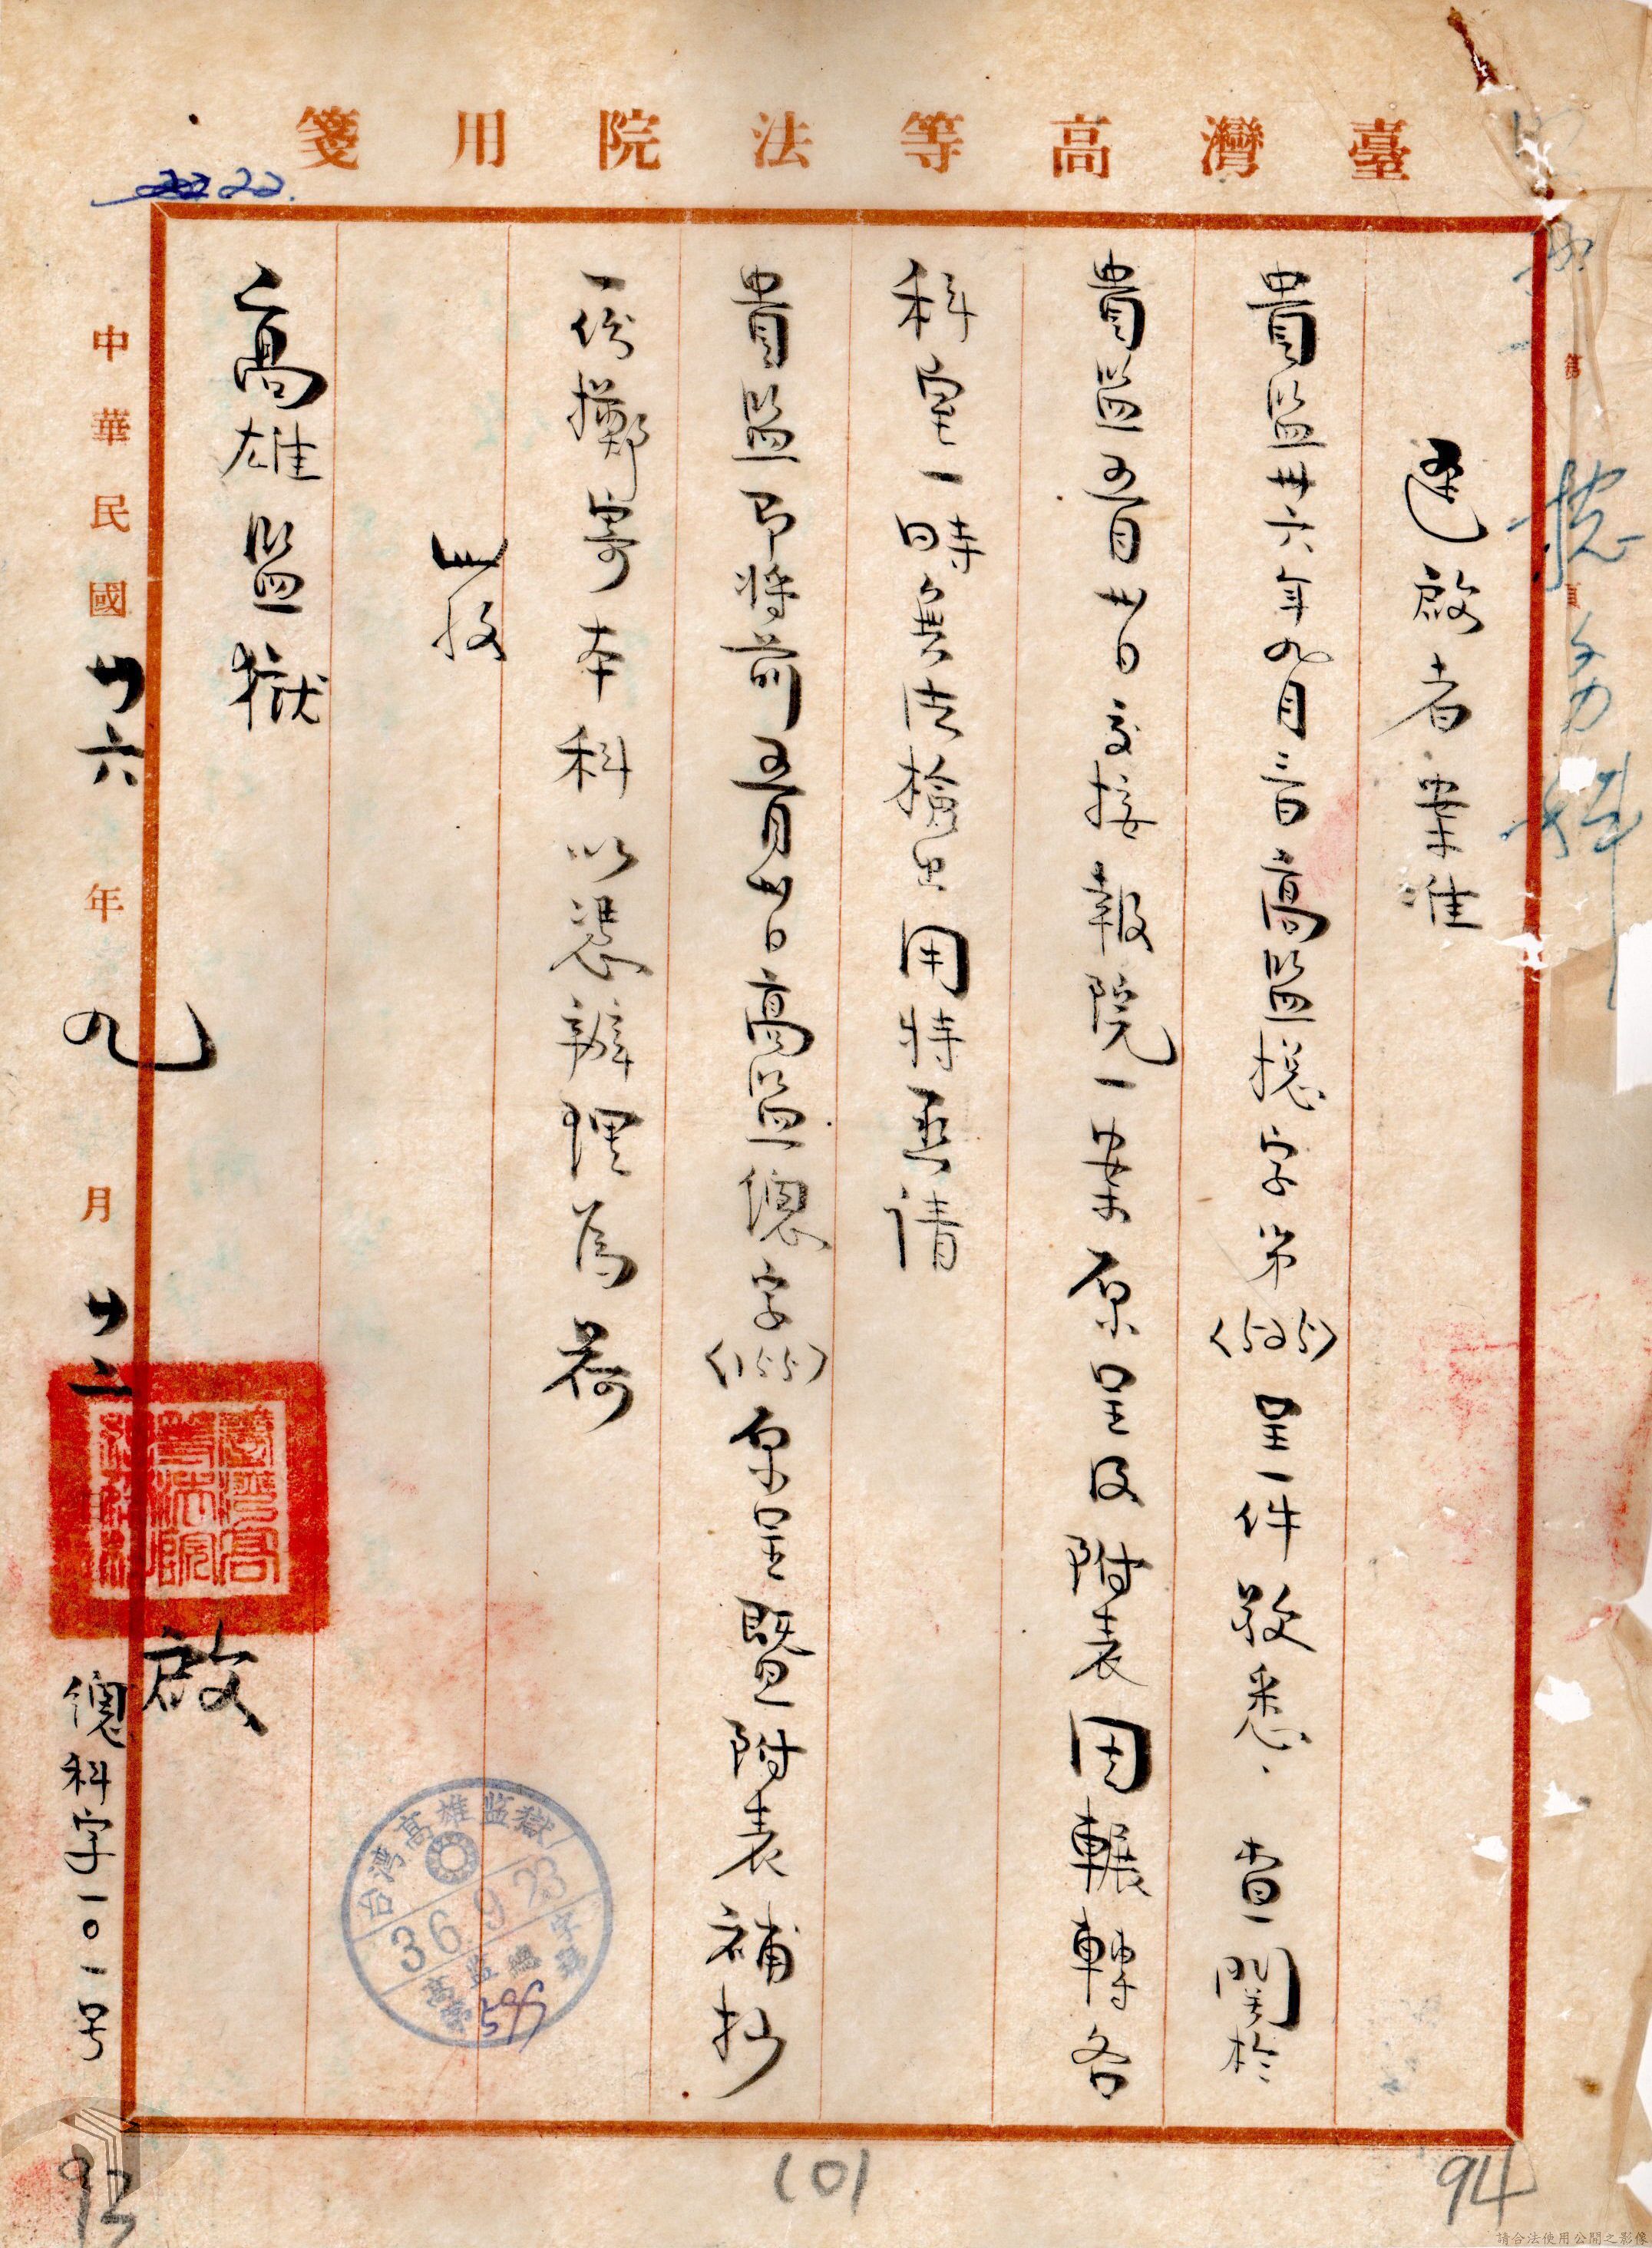 臺灣高等法院用箋
22.
總務科
逕啟者案准
貴監卅六年九月三日高監總字第(525)呈一件敬悉、查關於
貴監五月廿日交接報院一案原呈及附表因輾轉各
科室一時無法檢出用特函請
貴監即將前五月廿日高監總字(155)原呈暨附表補抄
一份擲寄本科以憑辦理為荷
此致
高雄監獄
啟
中華民國卅六年九月廿二日
總科字一〇一號
台灣高雄监獄
36.9.23
高監總字第
595
94
101
93
請合法使用公開之影像